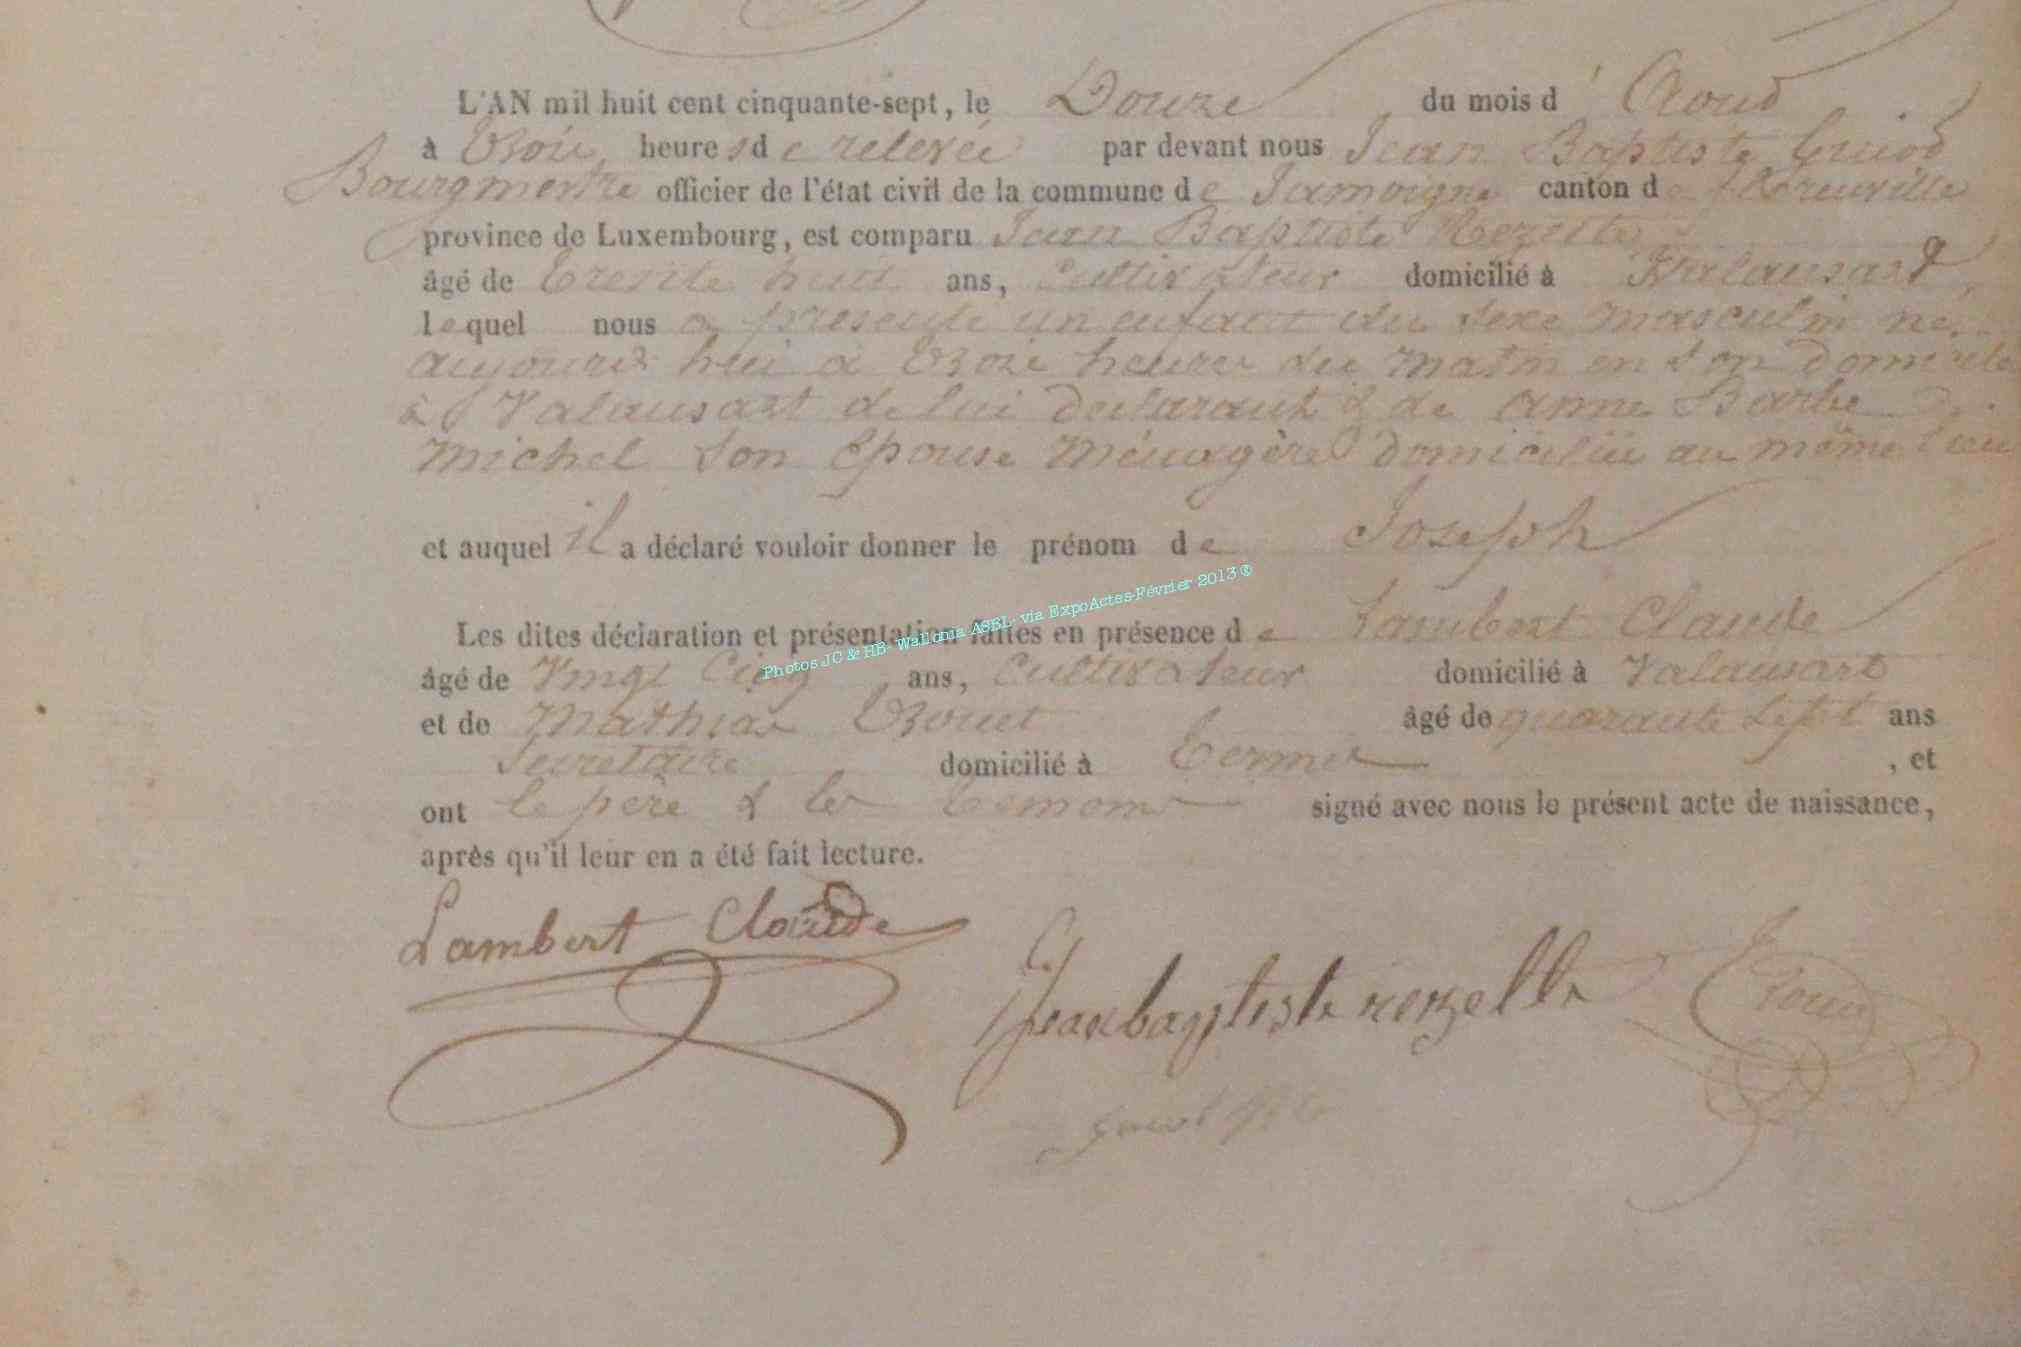 L'AN mil huit cent cinquante-sept, le Douze du mois d' Aoud
à Trois heures de relevée par devant nous Jean Baptiste Guiod
Bourgmestre officier de l'état civil de la commune de Jamoigne canton de florenville
province de Luxembourg, est comparu Jean Baptiste
âgé de trente huit ans, Cultivateur domicilié à Valansart
lequel nous a présenté un enfant du sexe masculin né
aujourd'hui à Trois heures du matin en son domicile
à Valansart de lui déclarant & de Anne Barbe
Michel son épouse Ménagère domiciliée au même lieu
et auquel il a déclaré vouloir donner le prénom de Joseph
Les dites déclaration et présentation faites en présence de Lambert Claude
âgé de Vingt Cinq ans, Cultivateur domicilié à Valansart
et de Mathias âgé de quarante sept ans
Secretaire domicilié à Termes , et
ont le père & les temoins signé avec nous le présent acte de naissance,
après qu'il leur en a été fait lecture.
Lambert Claude
Jeanbaptiste
Photos JC & HB- Wallonia ASBL- via ExpoActes-Février 2013 ®